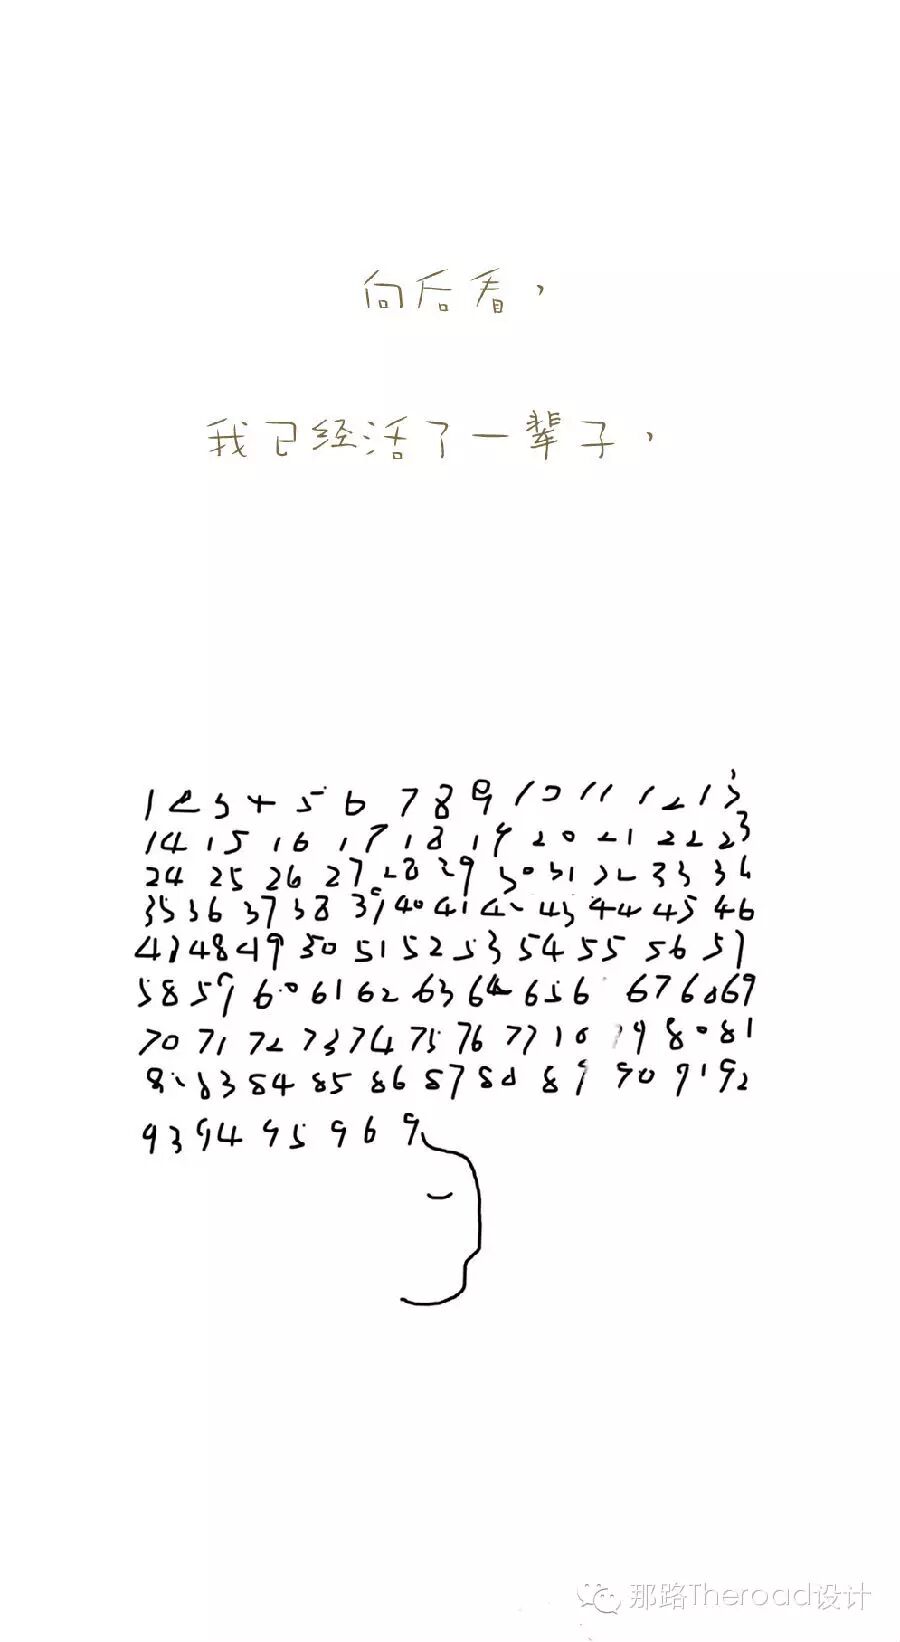 向后看，
我已经活了一辈子，
1 2 3 4 5 6 7 8 9 10 11 12 13
14 15 16 17 18 19 20 21 22 23
24 25 26 27 28 29 30 31 32 33 34
35 36 37 38 39 40 41 42 43 44 45 46
47 48 49 50 51 52 53 54 55 56 57
58 59 60 61 62 63 64 65 6 67 68 69
70 71 72 73 74 75 76 77 78 79 80 81
82 83 84 85 86 87 88 89 90 91 92
93 94 95 96 9
那路Theroad设计